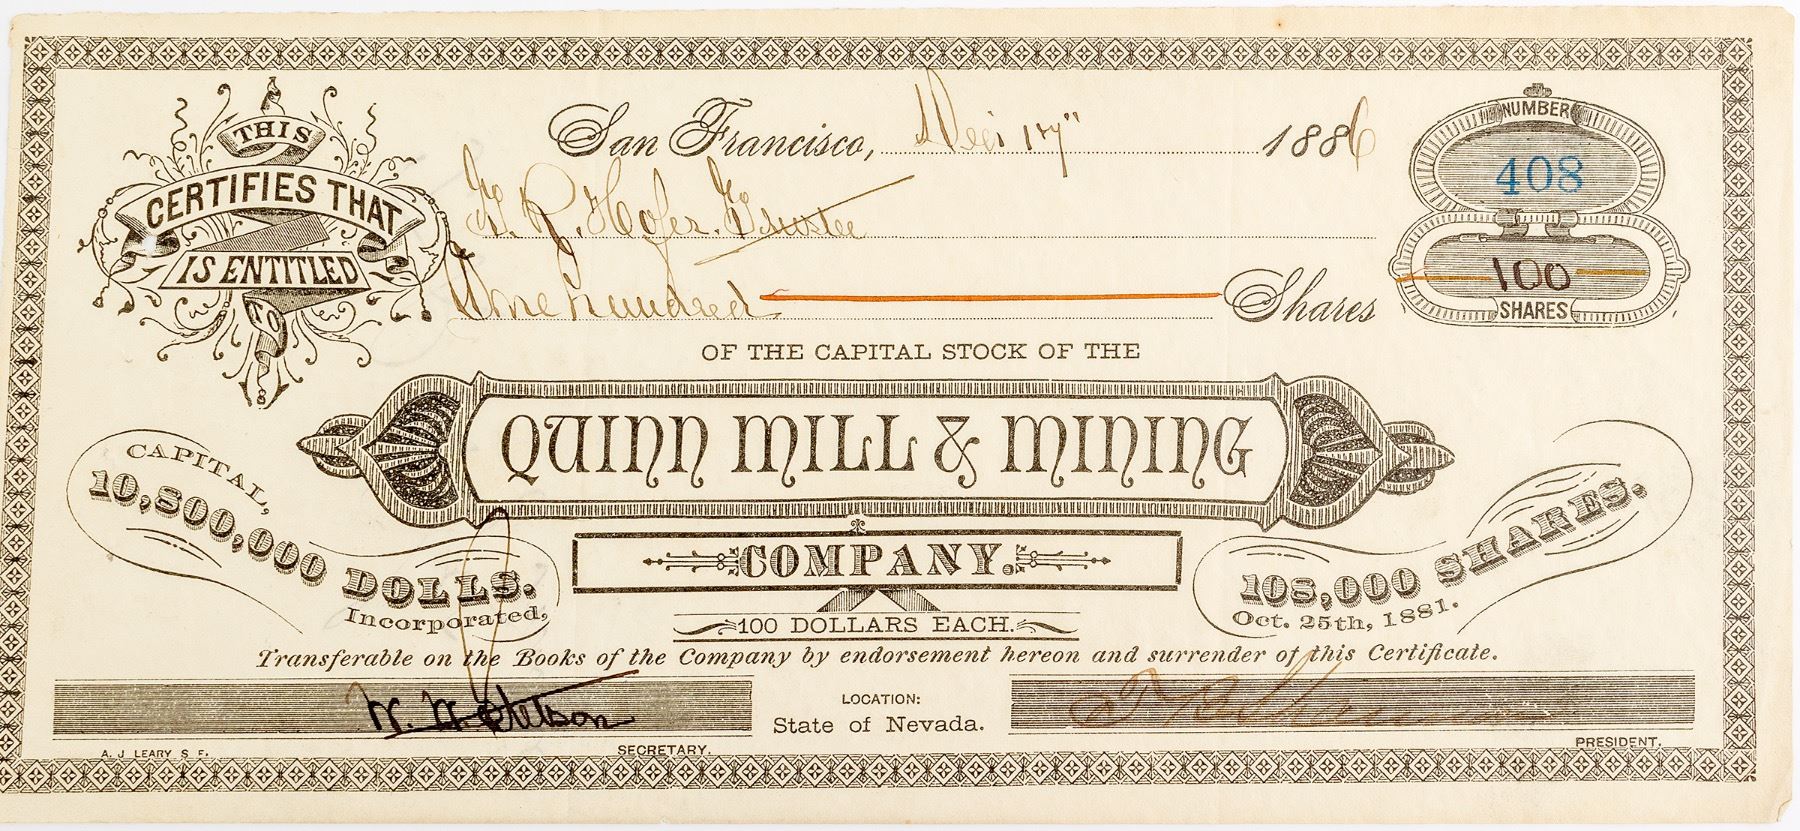 THIS
CERTIFIES THAT
IS ENTITLED
TO
San Francisco, Dec 17" 1886
NUMBER
408
Hofer. Trustee
One hundred Shares
100
SHARES
OF THE CAPITAL STOCK OF THE
QUINN MILL & MINING
COMPANY.
CAPITAL,
10,800,000 DOLLS.
Incorporated,
108,000 SHARES.
Oct. 25th, 1881.
100 DOLLARS EACH.
Transferable on the Books of the Company by endorsement hereon and surrender of this Certificate.
W. W. Stetson
LOCATION:
State of Nevada.
A. J LEARY S F.
SECRETARY.
PRESIDENT.